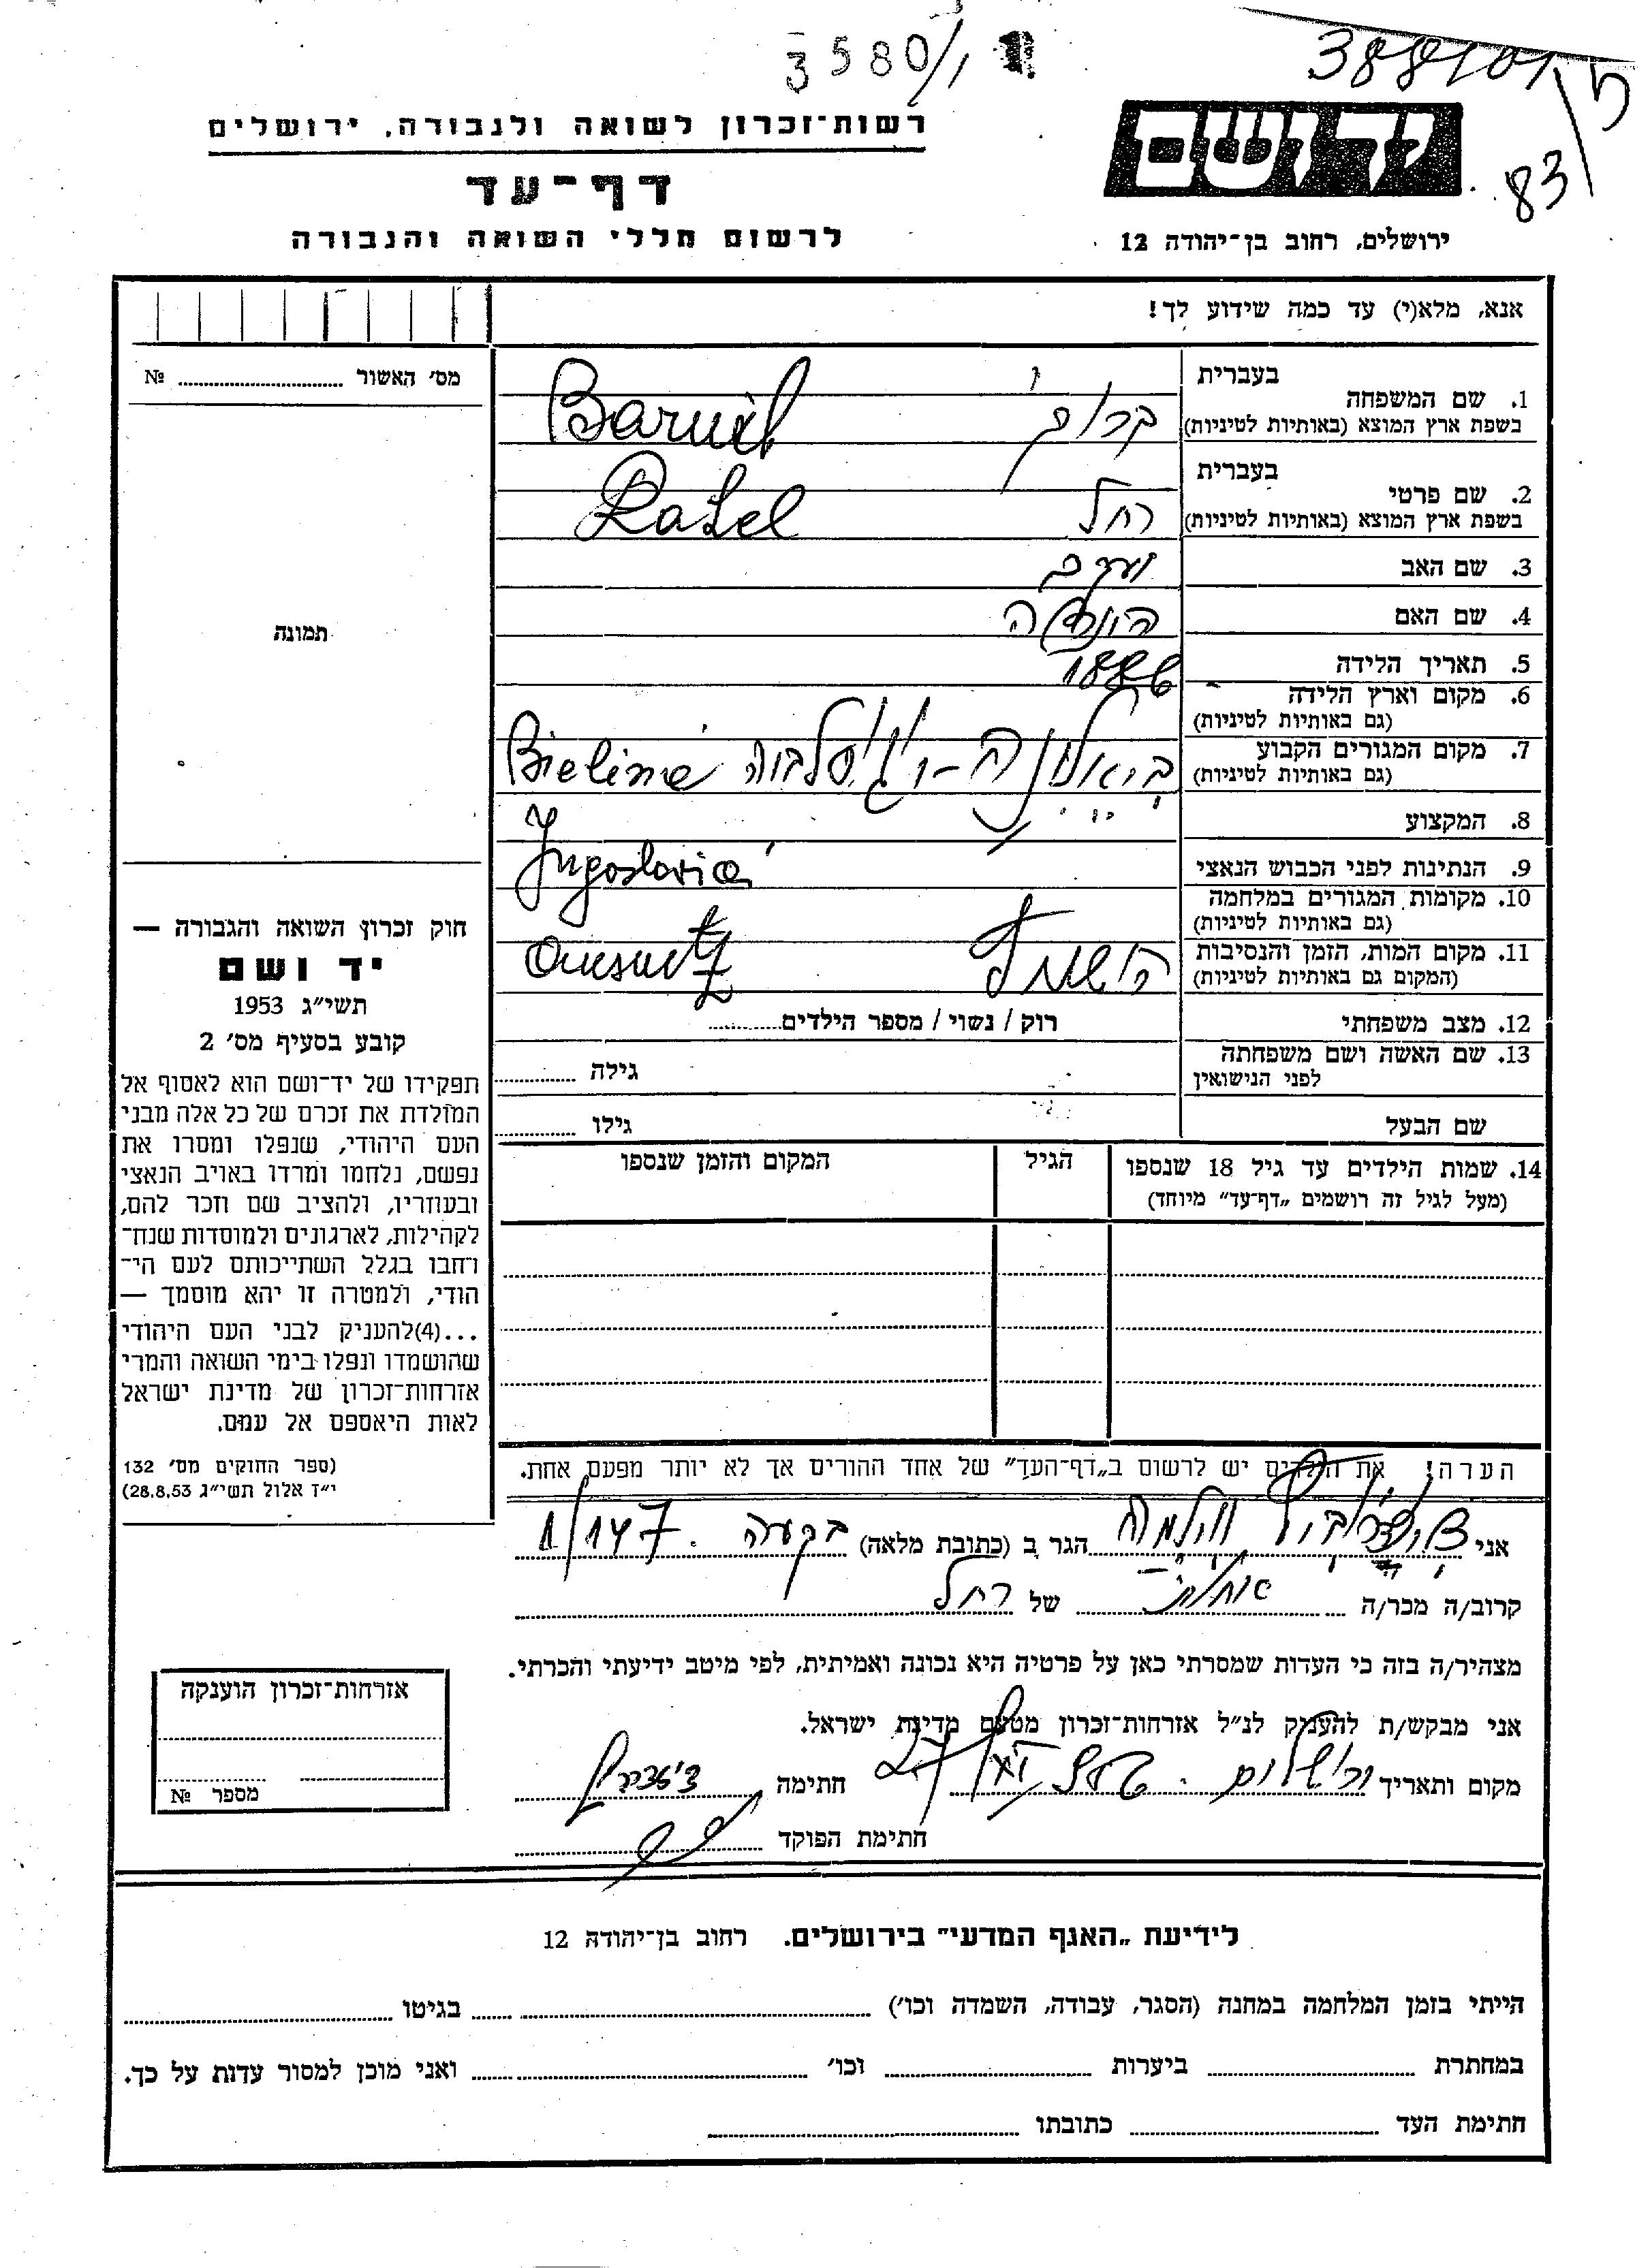 3580/1
388101
83/5
רשות־זכרון לשואה ולגבורה, ירושלים
יד ושם
דף־עד
לרשום חללי השואה והגבורה
ירושלים, רחוב בן־יהודה 12
אנא, מלא(י) עד כמה שידוע לך!
מס׳ האשור № ....
תמונה
בעברית
1. שם המשפחה
בשפת ארץ המוצא (באותיות לטיניות)
ברוך Baruch
בעברית
2. שם פרטי
בשפת ארץ המוצא (באותיות לטיניות)
רחל Rahel
3. שם האב
יעקב
4. שם האם
5. תאריך הלידה
6. מקום וארץ הלידה
(גם באותיות לטיניות)
7. מקום המגורים הקבוע
(גם באותיות לטיניות)
8. המקצוע
Jugoslavia
9. הנתינות לפני הכבוש הנאצי
10. מקומות המגורים במלחמה
(גם באותיות לטיניות)
11. מקום המות, הזמן והנסיבות
(המקום גם באותיות לטיניות)
12. מצב משפחתי
רוק / נשוי / מספר הילדים........
13. שם האשה ושם משפחתה
לפני הנישואין
גילה ........
שם הבעל
גילו ........
14. שמות הילדים עד גיל 18 שנספו
(מעל לגיל זה רושמים „דף־עד” מיוחד)
הגיל
המקום והזמן שנספו
חוק זכרון השואה והגבורה —
יד ושם
תשי״ג 1953
קובע בסעיף מס׳ 2
תפקידו של יד־ושם הוא לאסוף אל
המולדת את זכרם של כל אלה מבני
העם היהודי, שנפלו ומסרו את
נפשם, נלחמו ומרדו באויב הנאצי
ובעוזריו, ולהציב שם וזכר להם,
לקהילות, לארגונים ולמוסדות שנח־
רבו בגלל השתייכותם לעם הי־
הודי, ולמטרה זו יהא מוסמך —
...(4)להעניק לבני העם היהודי
שהושמדו ונפלו בימי השואה והמרי
אזרחות־זכרון של מדינת ישראל
לאות היאספם אל עמם.
(ספר החוקים מס׳ 132
י״ז אלול תשי״ג 28.8.53)
הערה! את הילדים יש לרשום ב„דף־העד” של אחד ההורים אך לא יותר מפעם אחת.
אני הגר ב (כתובת מלאה) בקעה. 147/1
קרוב/ה מכר/ה של רחל
מצהיר/ה בזה כי העדות שמסרתי כאן על פרטיה היא נכונה ואמיתית, לפי מיטב ידיעתי והכרתי.
אני מבקש/ת להעניק לנ״ל אזרחות־זכרון מטעם מדינת ישראל.
מקום ותאריך ירושלים חתימה
חתימת הפוקד
אזרחות־זכרון הוענקה
מספר №
לידיעת „האגף המדעי” בירושלים. רחוב בן־יהודה 12
הייתי בזמן המלחמה במחנה (הסגר, עבודה, השמדה וכו׳) ........ בגיטו ........
במחתרת ........ ביערות ........ וכו׳ ........ ואני מוכן למסור עדות על כך.
חתימת העד ........ כתובתו ........